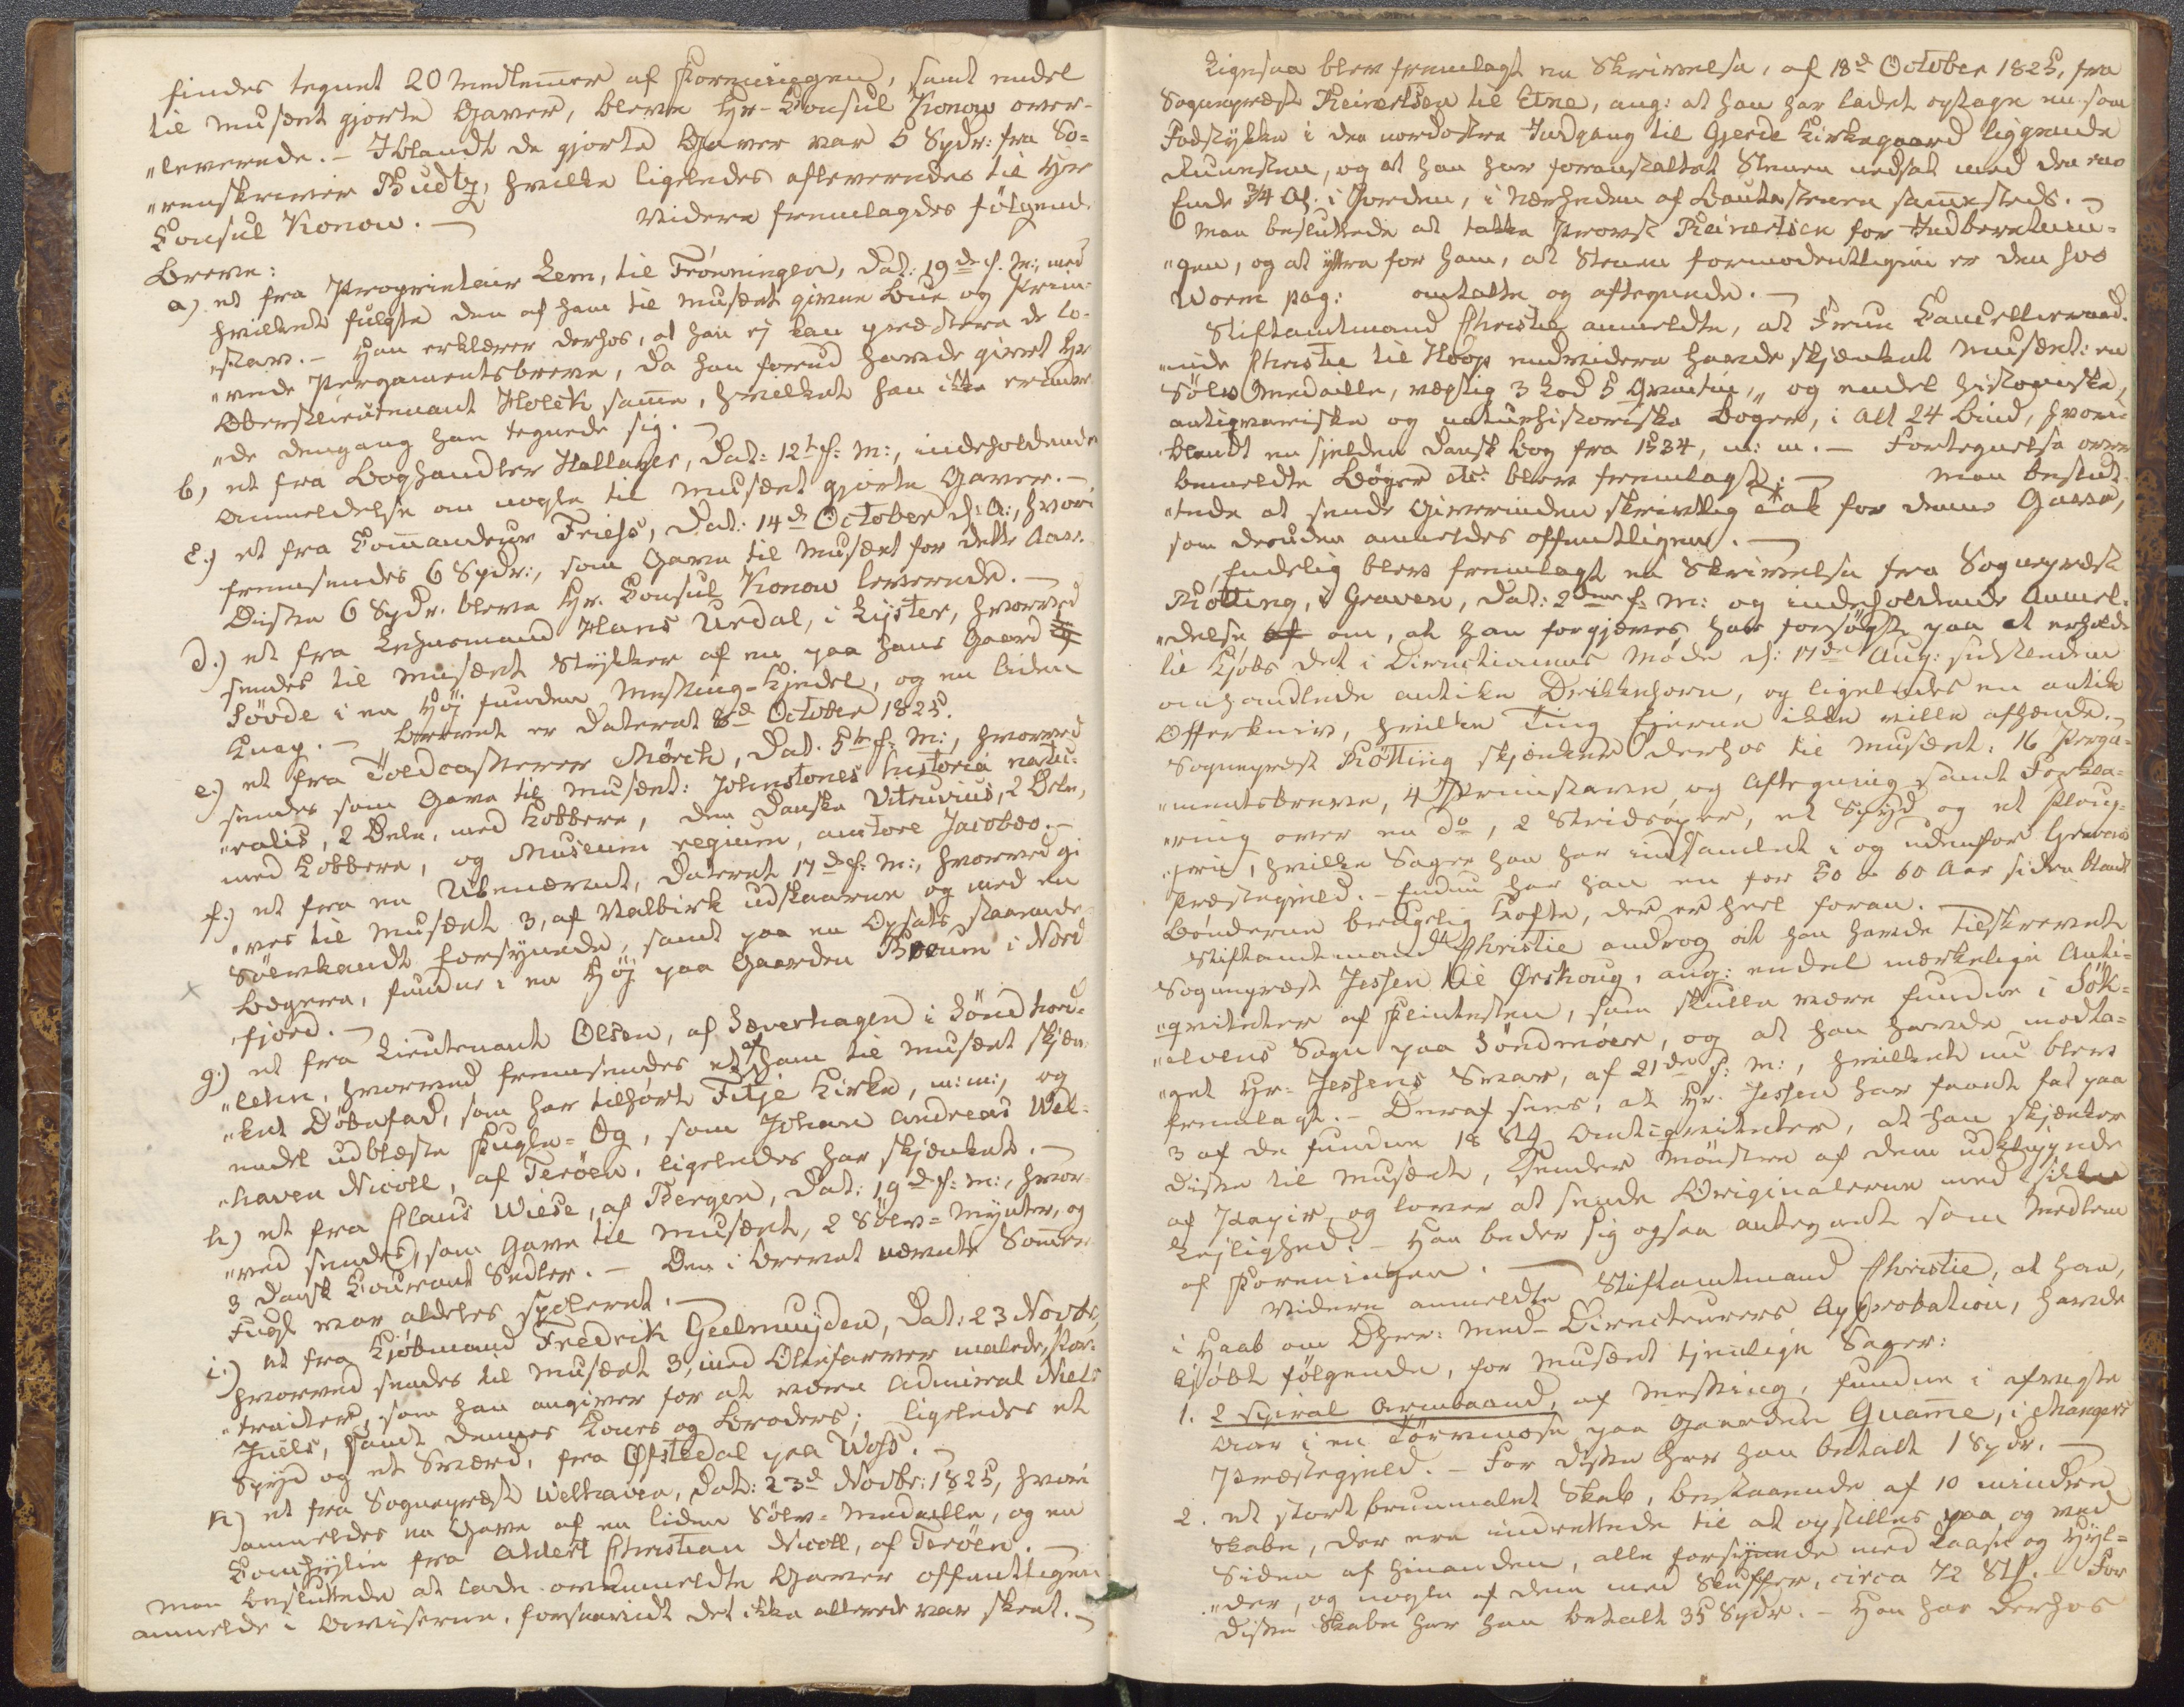 findes tegnet 20 Medlemmer af Foreningen, samt endel
til Musæet gjorte Gaver, bleve Hr. Consul Konow over-
„leverede. – Iblandt de gjorte Gaver var 5 Spdr: fra So-
„renskriver Budtz, hvilke ligeledes afleveredes til Herr
Consul Konow. – Videre fremlagdes følgend.
Breve:
a) et fra Proprietair Lem, til Frønningen, dat: 19de f. M:, med
hvilket fulgte den af ham til Musæet givne Bue og Prim-
„stav. – Han erklærer derhos, at han ej kan præstere de lo-
„vede Pergamentsbreve, da han forud havde givet Hr
Oberstlieutenant Holck samme, hvilket han ikke erindre-
„de dengang han tegnede sig. –
b) et fra Boghandler Hallager, dat: 12te f: M:, indeholdende
Anmeldelse om nogle til Musæet gjorte Gaver. –
c.) et fra Commandeur Friehs, dat: 14de October d: A:, hvori
fremsendes 6 Spdr:, som Gave til Musæet for dette Aar.
Disse 6 Spdr. bleve Hr. Consul Konow leverede. –
d.) et fra Lehnsmand Hans Urdal, i Lyster, hvorved
sendes til Musæet Stykker af en paa hans Gaard
Søvde i en Høj funden Messing-Kjedel, og en liden
Knap. – Brevet er dateret 8de October 1825.
e.) et fra Toldcasserer Mörch, dat. 5te f: M:, hvorved
sendes som Gave til Musæet: Johnstones historia natu-
„ralis, 2 Dele, med Kobbere, den danske Vitruvius, 2 Dele,
med Kobbere, og Museum regium, auctore Jacobæo. –
f.) et fra en Ubenævnt, dateret 17de f: M:, hvorved gi
„ves til Musæet 3, af Valbirk udskaarne og med en
Sølvkandt forsynede, samt paa en Opsats staaende
Bægere, fundne i en Høj paa Gaarden Boeum i Nord
fjord. –
g.) et fra Lieutenant Olsen, af Sæverhagen i Söndhord-
„lehn, hvorved fremsendes et af ham til Musæet skjæn-
„ket Døbefad, som har tilhört Fitje Kirke, m: m:, og
endel udblæste Fugle-Æg, som Johan Andreas Wel-
„haven Nicoll, af Terøen, ligeledes har skjænket. –
h) et fra Claus Wiese, af Bergen, dat: 19de f: m:, hvor-
„ved sendes, som Gave til Musæet, 2 Sølv-Mynter, og
3 dansk Courant Sedler. – Den i Brevet nævnte Sommer
Fugl var aldeles spoleret. –
i.) et fra Kjöbmand Fredrik Geelmuyden, dat: 23 Novbr,
hvorved sendes til Musæet 3, med Oliefarver malede, Por-
„traiter, som han angiver for at være Admiral Niels
Juels, samt dennes Kones og Broders; ligeledes et
Spyd og et Sværd, fra Øfstedal paa Woss. –
k) et fra Sognepræst Welhaven, dat: 23de Novbr: 1825, hvori
anmeldes en Gave af en liden Sølv-Medaille, og en
Conchylie fra Aldert Christian Nicoll, af Terøen. –
Man besluttede at lade ovenmeldte Gaver offentligen
anmelde i Aviserne, forsaavidt det ikke allerede var skeet. –
Ligesaa blev fremlagt en Skrivelse, af 18de October 1825, fra
Sognepræst Reinertsen til Etne, ang: at han har ladet optage en som
Fodstykke i den nordostre Indgang til Gjerde Kirkegaard liggende
Runesten, og at han har foranstaltet Stenen nedsat med den ene
Ende 3/4 Al. i Jorden, i Nærheden af Bautastenen sammesteds. –
Man besluttede at takke Provst Reinertsen for Indberetnin-
„gen, og at ytre for ham, at Stenen formodentligen er den hos
Worm pag: omtalte og aftegnede. –
Stiftamtmand Christie anmeldte, at Frue Cancelliraad-
„inde Christie til Hoop endvidere havde skjænket Musæet: en
Sølv Medaille, vægtig 3 Lod 5 Qvintin, og endel historiske,
antiqvariske og naturhistoriske Bøger, i alt 24 Bind, hvori-
blandt en sjelden dansk Bog fra 1534, m: m. – Fortegnelse over
bemeldte Bøger etc: blev fremlagt. – Man beslut-
„tede at sende Giverinden skriftlig Tak for denne Gave,
som desuden anmeldes offentligen. –
Endelig blev fremlagt en Skrivelse fra Sognepræst
Rötting, i Graven, dat: 2den f: M: og indeholdende Anmel-
„delse om, at han forgjæves har forsøgt paa at erholde
til Kjöbs det i Directionens Møde d: 17de Aug: sidstleden
omhandlede antike Drikkehorn, og ligeledes en antik
Offerkniv, hvilke Ting Ejerne ikke ville afhænde. –
Sognepræst Rötting skjænker derhos til Musæet: 16 Perga-
„mentsbreve, 4 Primstave, og Aftegning samt Forkla-
„ring over en do, 2 Stridsøxer, et Spyd og et Ploug-
„jern, hvilke Sager han har indsamlet i og udenfor Gravens
Præstegjeld. – Endnu har han en for 50 a 60 Aar siden blandt
Bønderne brugelig Kofte, der er heel foran. –
Stiftamtmand Christie androg at han havde tilskrevet
Sognepræst Jessen til Ørskoug, ang: endel mærkelige Anti-
„qviteter af Flintesten, som skulle være fundne i Søk-
„elvens Sogn paa Søndmøer, og at han havde modta-
„get Hr. Jessens Svar, af 21de f: M:, hvilket nu blev
fremlagt. – Deraf sees, at Hr. Jessen har faaet fat paa
3 af de fundne 18 St. Antiqviteter, at han skjænker
disse til Musæet, sender Mönstre af dem udklippede
af Papir, og lover at sende Originalerne med sikker
Lejlighed. – Han beder sig ogsaa antegnet som Medlem
af Foreningen. –
Videre anmeldte Stiftamtmand Christie, at han,
i Haab om DHrr: Med-Directeurers Approbation, havde
kjøbt følgende, for Musæet tjenlige Sager:
1. 2 Spiral Armbaand, af Messing, fundne i afvigte
Aar i en Törvmose paa Gaarden Quamme, i Mangers
Præstegjeld. – For disse har han betalt 1 Spdr. –
2. et stort brunmalet Skab, bestaaende af 10 mindre
Skabe, der ere indrettede til at opstilles paa og ved
Siden af hinanden, alle forsynede med Laase og Hyl-
„der, og nogle af dem med Skuffer, circa 72 St. – For
disse Skabe har han betalt 35 Spdr. – Han har derhos